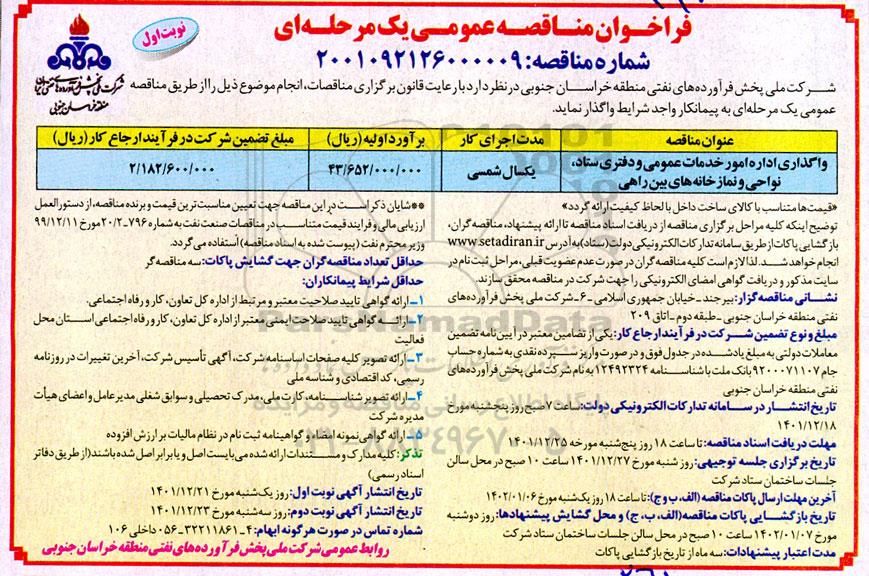 فراخوان مناقصه عمومی یک مرحله‌ای
نوبت اول
شماره مناقصه: ۲۰۰۱۰۹۲۱۲۶۰۰۰۰۰۹
شرکت ملی پخش فرآورده‌های نفتی ایران
منطقه خراسان جنوبی
شرکت ملی پخش فرآورده‌های نفتی منطقه خراسان جنوبی در نظر دارد با رعایت قانون برگزاری مناقصات، انجام موضوع ذیل را از طریق مناقصه
عمومی یک مرحله‌ای به پیمانکار واجد شرایط واگذار نماید.
عنوان مناقصه	مدت اجرای کار	برآورد اولیه (ریال)	مبلغ تضمین شرکت در فرآیند ارجاع کار (ریال)
واگذاری اداره امور خدمات عمومی و دفتری ستاد،
نواحی و نمازخانه‌های بین راهی	یکسال شمسی	۴۳/۶۵۲/۰۰۰/۰۰۰	۲/۱۸۲/۶۰۰/۰۰۰
«قیمت‌ها متناسب با کالای ساخت داخل با لحاظ کیفیت ارائه گردد»
توضیح اینکه کلیه مراحل برگزاری مناقصه از دریافت اسناد مناقصه تا ارائه پیشنهاد، مناقصه‌گران،
بازگشایی پاکات از طریق سامانه تدارکات الکترونیکی دولت (ستاد) به آدرس www.setadiran.ir
انجام خواهد شد. لذا لازم است کلیه مناقصه گران در صورت عدم عضویت قبلی، مراحل ثبت نام در
سایت مذکور و دریافت گواهی امضای الکترونیکی را جهت شرکت در مناقصه محقق سازند.
نشانی مناقصه‌گزار: بیرجند - خیابان جمهوری اسلامی - ۶ - شرکت ملی پخش فرآورده‌های
نفتی منطقه خراسان جنوبی - طبقه دوم - اتاق ۲۰۹
مبلغ و نوع تضمین شرکت در فرآیند ارجاع کار: یکی از تضامین معتبر در آیین‌نامه تضمین
معاملات دولتی به مبلغ یاد شده در جدول فوق و در صورت واریز سپرده نقدی به شماره حساب
جام ۹۲۰۰۰۷۱۱۰۷ بانک ملت با شناسنامه ۱۲۴۹۲۳۲۴ به نام شرکت ملی پخش فرآورده‌های
نفتی منطقه خراسان جنوبی
تاریخ انتشار در سامانه تدارکات الکترونیکی دولت: ساعت ۷ صبح روز پنجشنبه مورخ
۱۴۰۱/۱۲/۱۸
مهلت دریافت اسناد مناقصه: تا ساعت ۱۸ روز پنج‌شنبه مورخه ۱۴۰۱/۱۲/۲۵
تاریخ برگزاری جلسه توجیهی: روز شنبه مورخ ۱۴۰۱/۱۲/۲۷ ساعت ۱۰ صبح در محل سالن
جلسات ساختمان ستاد شرکت
آخرین مهلت ارسال پاکات مناقصه (الف، ب و ج): تا ساعت ۱۸ روز یکشنبه مورخ ۱۴۰۲/۰۱/۰۶
تاریخ بازگشایی پاکات مناقصه (الف، ب، ج) و محل گشایش پیشنهادها: روز دوشنبه
مورخ ۱۴۰۲/۰۱/۰۷ ساعت ۱۰ صبح در محل سالن جلسات ساختمان ستاد شرکت
مدت اعتبار پیشنهادات: سه ماه از تاریخ بازگشایی پاکات
**شایان ذکر است در این مناقصه جهت تعیین مناسبت‌ترین قیمت و برنده مناقصه، از دستورالعمل
ارزیابی مالی و فرایند قیمت متناسب در مناقصات صنعت نفت به شماره ۷۹۶-۲۰/۲ مورخ ۹۹/۱۲/۱۱
وزیر محترم نفت (پیوست شده به اسناد مناقصه) استفاده می‌گردد.
حداقل تعداد مناقصه گران جهت گشایش پاکات: سه مناقصه گر
حداقل شرایط پیمانکاران:
۱- ارائه گواهی تایید صلاحیت معتبر و مرتبط از اداره کل تعاون، کار و رفاه اجتماعی.
۲- ارائه گواهی تایید صلاحیت ایمنی معتبر از اداره کل تعاون، کار و رفاه اجتماعی استان محل
فعالیت
۳- ارائه تصویر کلیه صفحات اساسنامه شرکت، آگهی تأسیس شرکت، آخرین تغییرات در روزنامه
رسمی، کد اقتصادی و شناسه ملی
۴- ارائه تصویر شناسنامه، کارت ملی، مدرک تحصیلی و سوابق شغلی مدیرعامل و اعضای هیأت
مدیره شرکت
۵- ارائه گواهی نمونه امضاء و گواهینامه ثبت نام در نظام مالیات بر ارزش افزوده
تذکر: کلیه مدارک و مستندات ارائه شده می‌بایست اصل و یا برابر اصل شده باشند (از طریق دفاتر
اسناد رسمی)
تاریخ انتشار آگهی نوبت اول: روز یک‌شنبه مورخ ۱۴۰۱/۱۲/۲۱
تاریخ انتشار آگهی نوبت دوم: روز سه‌شنبه مورخ ۱۴۰۱/۱۲/۲۳
شماره تماس در صورت هرگونه ابهام: ۴-۳۲۲۱۱۸۶۱-۰۵۶ داخلی ۱۰۶
روابط عمومی شرکت ملی پخش فرآورده‌های نفتی منطقه خراسان جنوبی